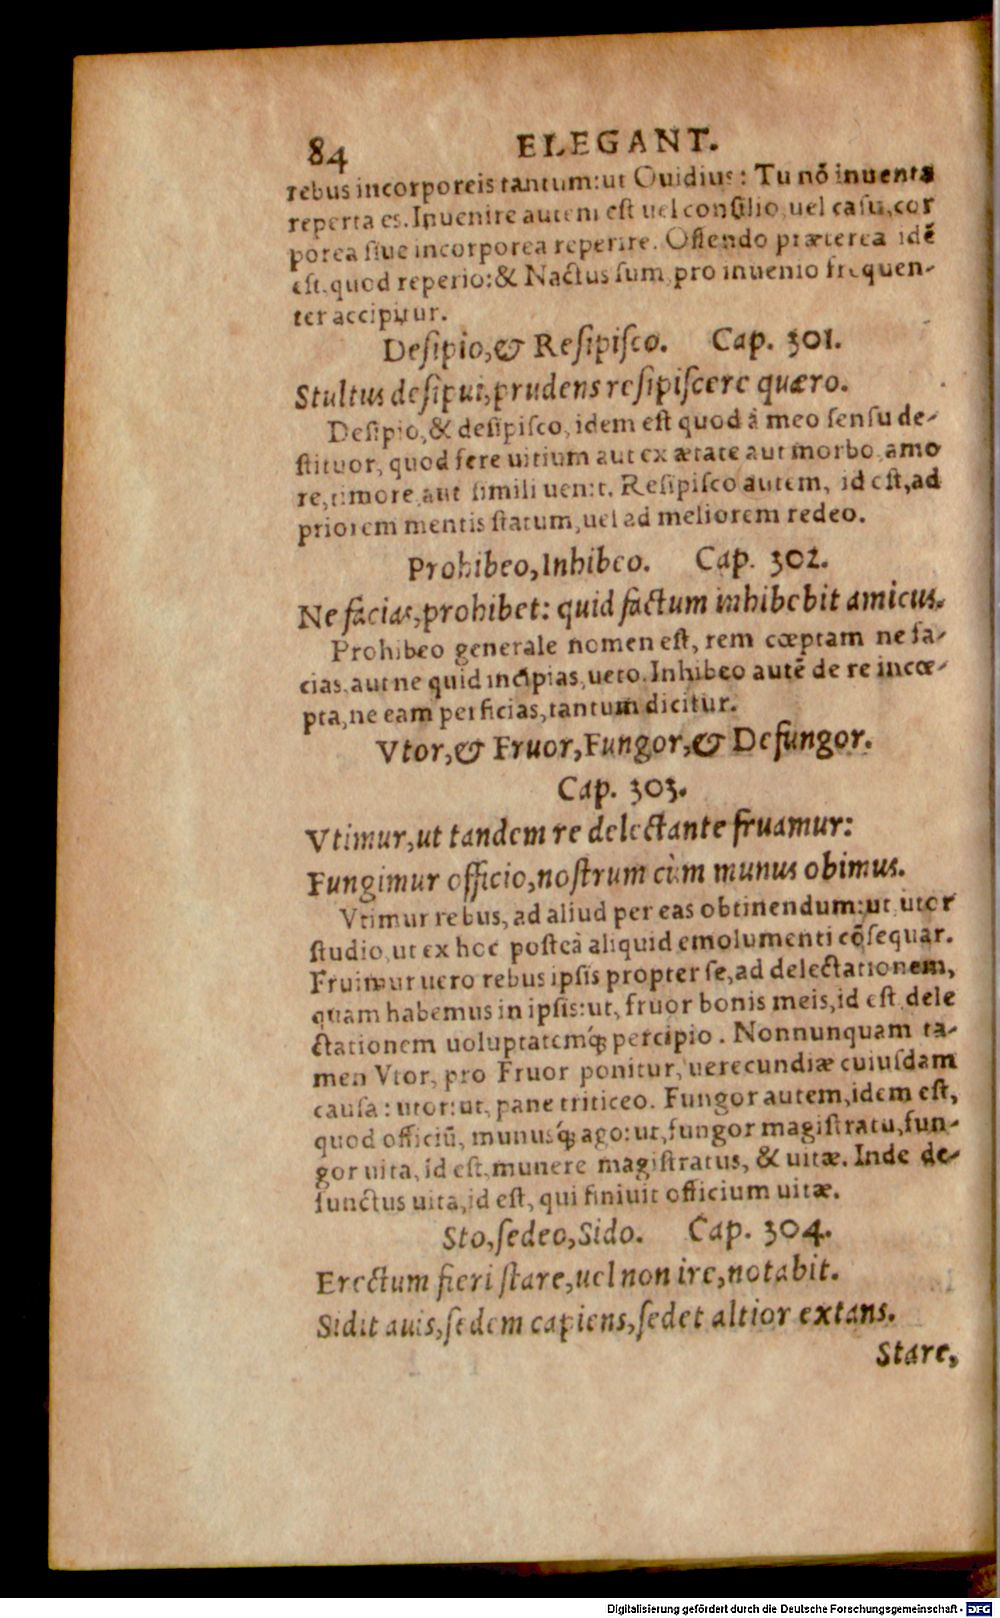 84 ELEGANT.
rebus incorporeis tantum: ut Ouidius: Tu nō inuenta
reperta es. Inuenire autem est uel consilio, uel casu, cor
porea siue incorporea reperire. Offendo præterea idē
est, quod reperio: & Nactus sum, pro inuenio frequen-
ter accipitur.
Desipio, & Resipisco. Cap. 301.
Stultus desipuit, prudens resipiscere quæro.
Desipio, & desipisco, idem est quod à meo sensu de-
stituor, quod fere uitium aut ex ætate aut morbo, amo
re, timore aut simili uenit. Resipisco autem, id est, ad
priorem mentis statum, uel ad meliorem redeo.
Prohibeo, Inhibeo. Cap. 302.
Ne facias, prohibet: quid factum inhibebit amicus.
Prohibeo generale nomen est, rem cœptam ne fa-
cias, aut ne quid incipias, ueto. Inhibeo autē de re incœ-
pta, ne eam perficias, tantum dicitur.
Vtor, & Fruor, Fungor, & Defungor.
Cap. 303.
Vtimur, ut tandem re delectante fruamur:
Fungimur officio, nostrum cùm munus obimus.
Vtimur rebus, ad aliud per eas obtinendum: ut utor
studio, ut ex hoc posteà aliquid emolumenti cōsequar.
Fruimur uero rebus ipsis propter se, ad delectationem,
quam habemus in ipsis: ut, fruor bonis meis, id est dele
ctationem uoluptatemq́; percipio. Nonnunquam ta-
men Vtor, pro Fruor ponitur, uerecundiæ cuiusdam
causa: utor: ut, pane triticeo. Fungor autem, idem est,
quod officiū, munusq́; ago: ut, fungor magistratu, fun-
gor uita, id est, munere magistratus, & uitæ. Inde de-
functus uita, id est, qui finiuit officium uitæ.
Sto, sedeo, Sido. Cap. 304.
Erectum fieri stare, uel non ire, notabit.
Sidit auis, sedem capiens, sedet altior extans.
Stare,
Digitalisierung gefördert durch die Deutsche Forschungsgemeinschaft - DFG